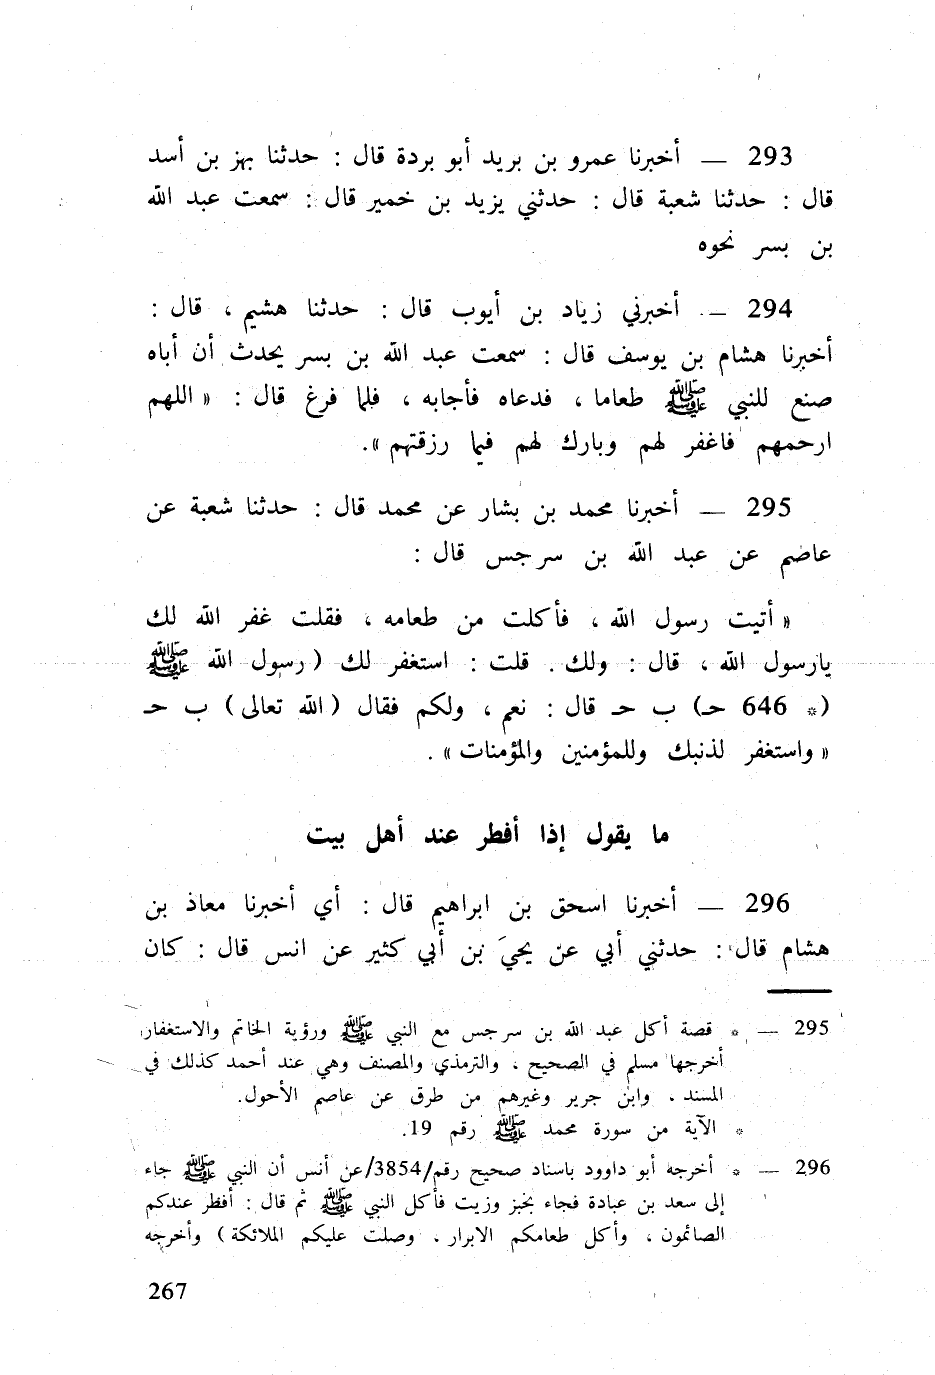 293 — أخبرنا عمرو بن بريد أبو بردة قال : حدثنا بهز بن أسد
قال : حدثنا شعبة قال : حدثني يزيد بن خمير قال : سمعت عبد الله
بن بسر نحوه
294 — أخبرني زياد بن أيوب قال : حدثنا هشيم ، قال :
أخبرنا هشام بن يوسف قال : سمعت عبد الله بن بسر يحدث أن أباه
صنع للنبي ﷺ طعاما ، فدعاه فأجابه ، فلما فرغ قال : « اللهم
ارحمهم فاغفر لهم وبارك لهم فيما رزقتهم ».
295 — أخبرنا محمد بن بشار عن محمد قال : حدثنا شعبة عن
عاصم عن عبد الله بن سرجس قال :
« أتيت رسول الله ، فأكلت من طعامه ، فقلت غفر الله لك
يارسول الله ، قال : ولك . قلت : استغفر لك ( رسول الله ﷺ
(* 646 حـ) ب حـ قال : نعم ، ولكم فقال ( الله تعالى ) ب حـ
« واستغفر لذنبك وللمؤمنين والمؤمنات » .
ما يقول إذا أفطر عند أهل بيت
296 — أخبرنا اسحق بن ابراهيم قال : أي أخبرنا معاذ بن
هشام قال : حدثني أبي عن يحيَ بن أبي كثير عن انس قال : كان
295 — * قصة أكل عبد الله بن سرجس مع النبي ﷺ ورؤية الخاتم والاستغفار،
أخرجها مسلم في الصحيح ، والترمذي والمصنف وهي عند أحمد كذلك في
المسند ، وابن جرير وغيرهم من طرق عن عاصم الأحول.
* الآية من سورة محمد ﷺ رقم 19.
296 — * أخرجه أبو داوود باسناد صحيح رقم/3854/عن أنس أن النبي ﷺ جاء
إلى سعد بن عبادة فجاء بخبز وزيت فأكل النبي ﷺ ثم قال : أفطر عندكم
الصائمون ، وأكل طعامكم الابرار ، وصلت عليكم الملائكة ) وأخرجه
267